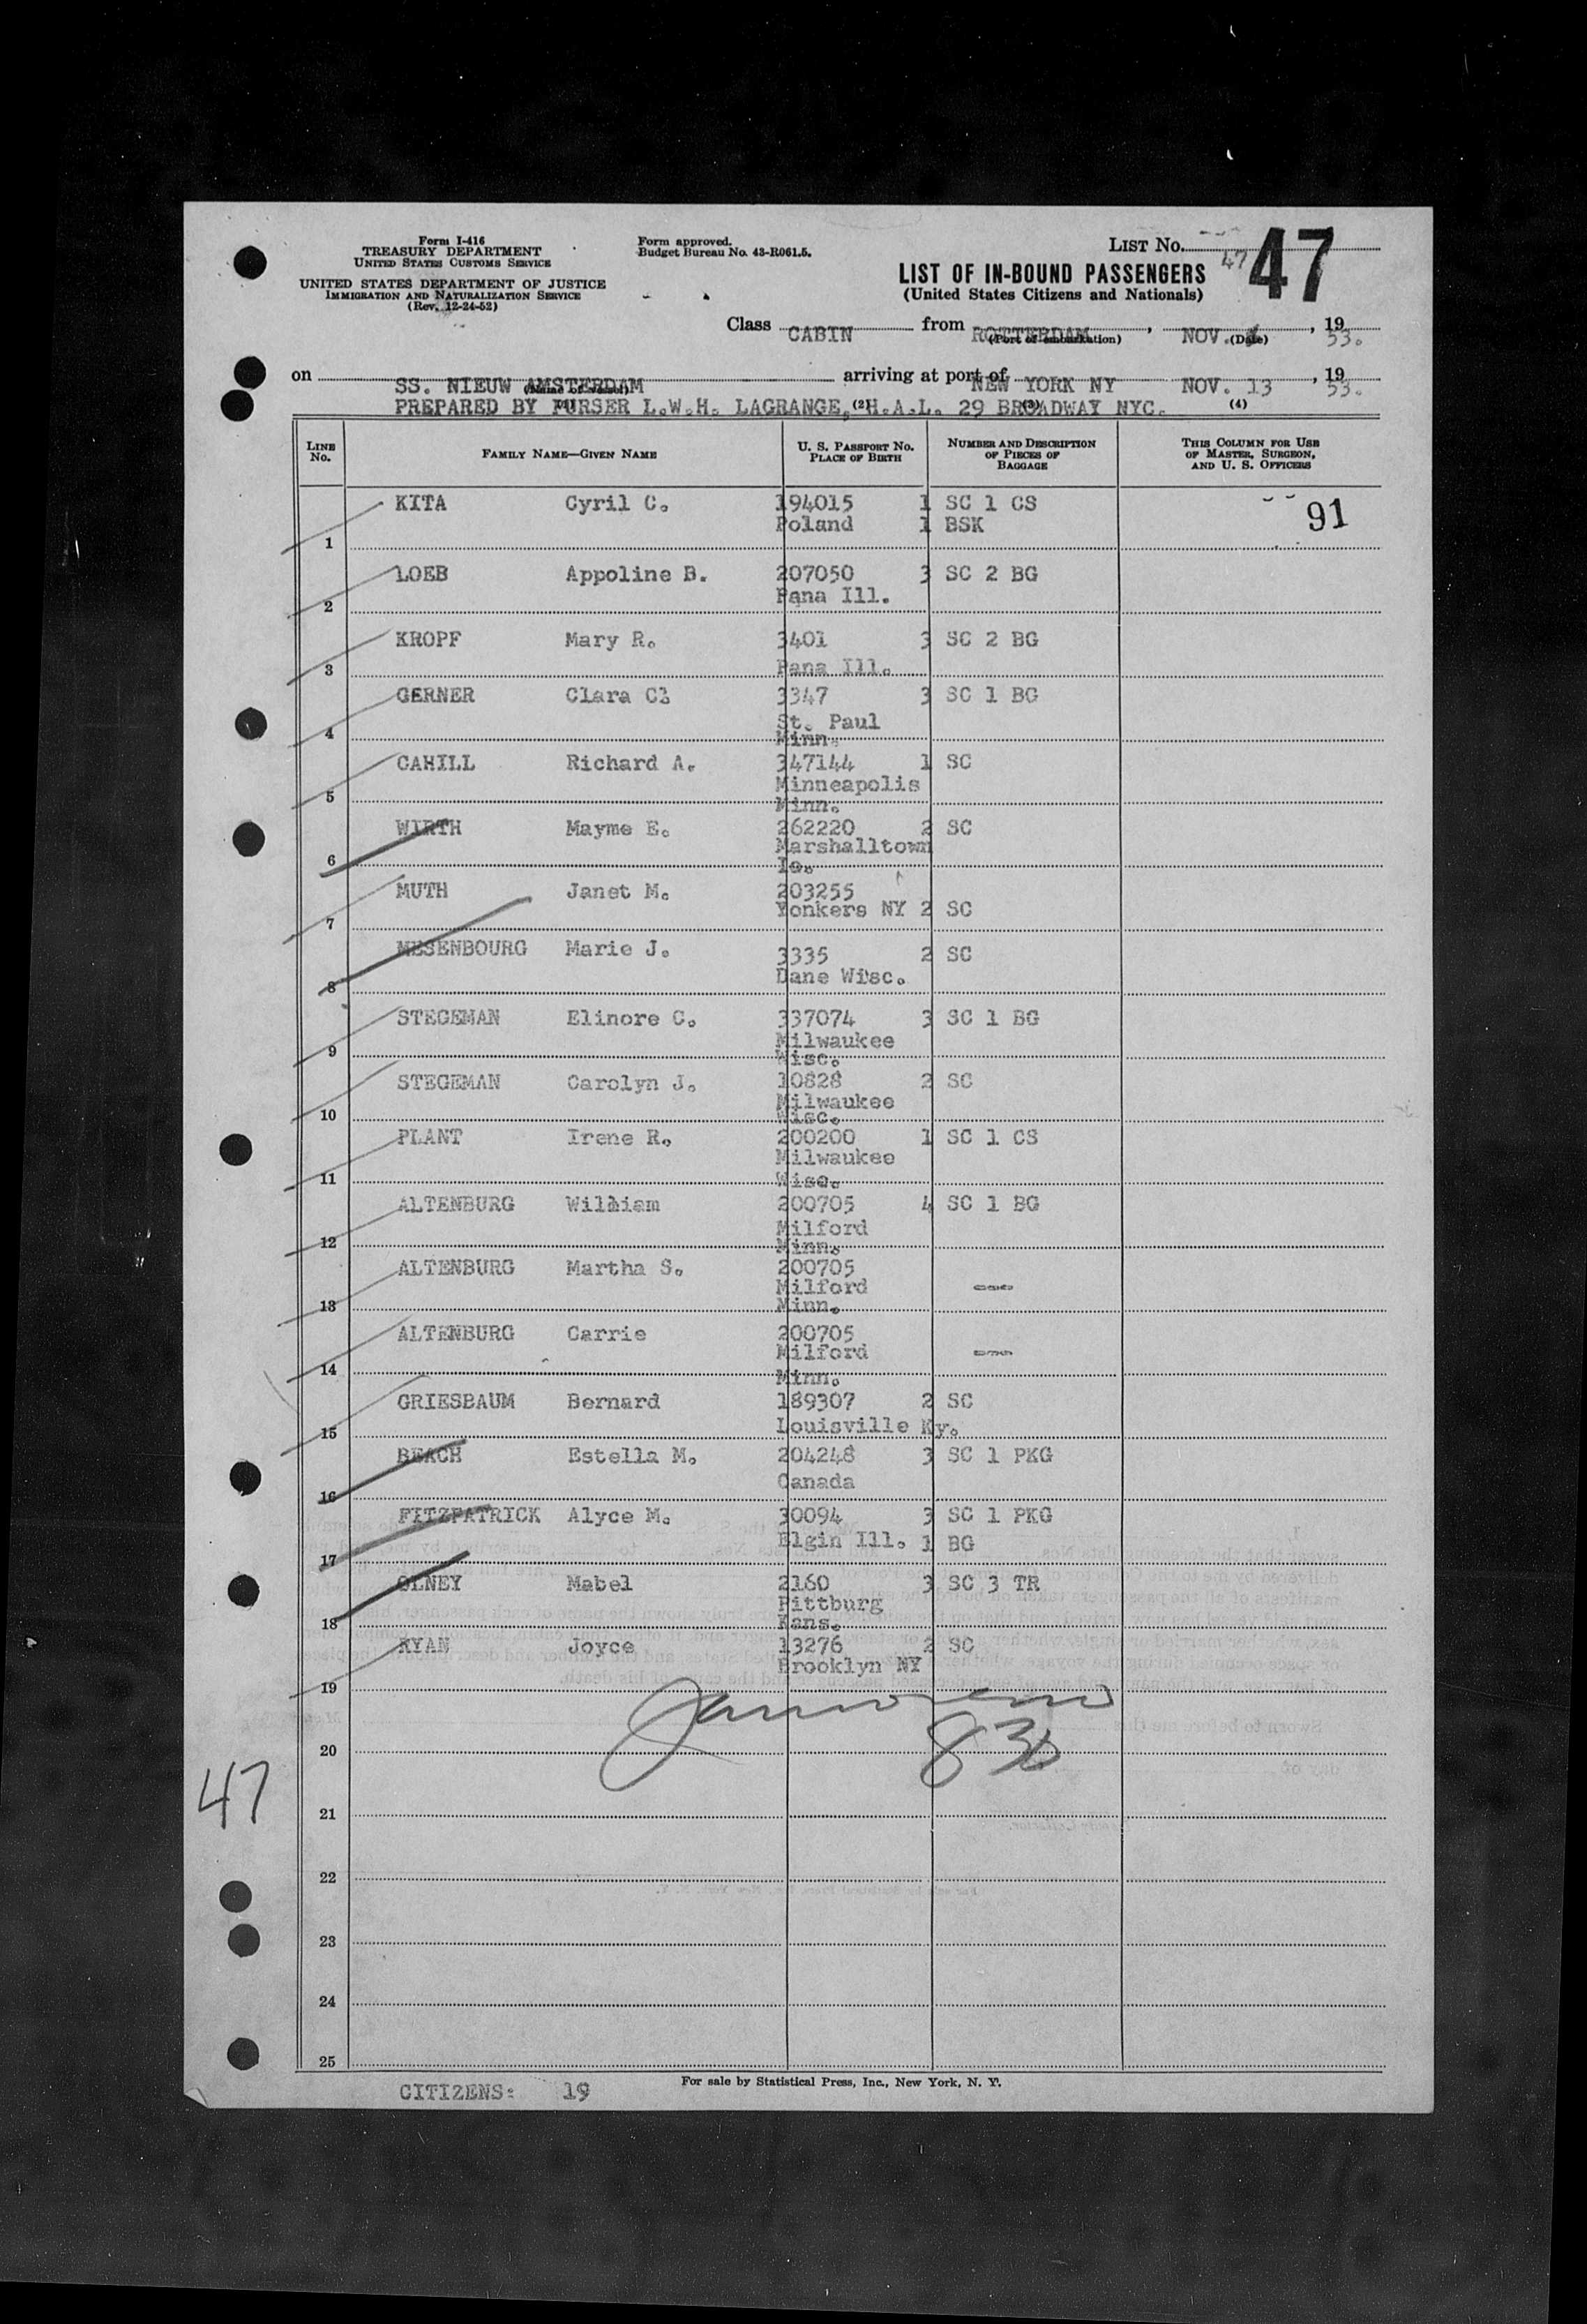 Form I-416
TREASURY DEPARTMENT
UNITED STATES CUSTOMS SERVICE
UNITED STATES DEPARTMENT OF JUSTICE
IMMIGRATION AND NATURALIZATION SERVICE
(Rev. 12-24-52)
Form approved.
Budget Bureau No. 43-R061.5.
LIST NO. 47 47
LIST OF IN-BOUND PASSENGERS
(United States Citizens and Nationals)
Class CABIN from ROTTERDAM, NOV. , 1953.
(Port of embarkation) (Date)
on SS. NIEUW AMSTERDAM arriving at port of NEW YORK NY NOV. 13, 1953.
(Name of vessel)
PREPARED BY PURSER L.W.H. LAGRANGE, H.A.L. 29 BROADWAY NYC.
(2) (3) (4)
LINE NO. FAMILY NAME—GIVEN NAME U. S. PASSPORT NO. PLACE OF BIRTH NUMBER AND DESCRIPTION OF PIECES OF BAGGAGE THIS COLUMN FOR USE OF MASTER, SURGEON, AND U. S. OFFICERS
KITA Cyril C. 194015 1 SC 1 CS 91
Poland 1 BSK
1
LOEB Appoline B. 207050 3 SC 2 BG
2 Pana Ill.
KROPF Mary R. 3401 3 SC 2 BG
3 Pana Ill.
GERNER Clara Cl 3347 3 SC 1 BG
St. Paul
4 Minn.
CAHILL Richard A. 347144 1 SC
Minneapolis
5 Minn.
WIRTH Mayme E. 262220 2 SC
Marshalltown
6 Io.
MUTH Janet M. 203255
Yonkers NY 2 SC
7
MESENBOURG Marie J. 3335 2 SC
Dane Wisc.
8
STEGEMAN Elinore C. 337074 3 SC 1 BG
Milwaukee
9 Wisc.
STEGEMAN Carolyn J. 10828 2 SC
Milwaukee
10 Wisc.
PLANT Irene R. 200200 1 SC 1 CS
Milwaukee
11 Wisc.
ALTENBURG William 200705 4 SC 1 BG
Milford
12 Minn.
ALTENBURG Martha S. 200705
Milford
13 Minn.
ALTENBURG Carrie 200705
Milford
14 Minn.
GRIESBAUM Bernard 189307 2 SC
15 Louisville Ky.
BEACH Estella M. 204248 3 SC 1 PKG
Canada
16
FITZPATRICK Alyce M. 30094 3 SC 1 PKG
Elgin Ill. 1 BG
17
OLNEY Mabel 2160 3 SC 3 TR
Pittburg
18 Kans.
RYAN Joyce 13276 2 SC
Brooklyn NY
19
20
47
21
22
23
24
25
CITIZENS: 19
For sale by Statistical Press, Inc., New York, N. Y.